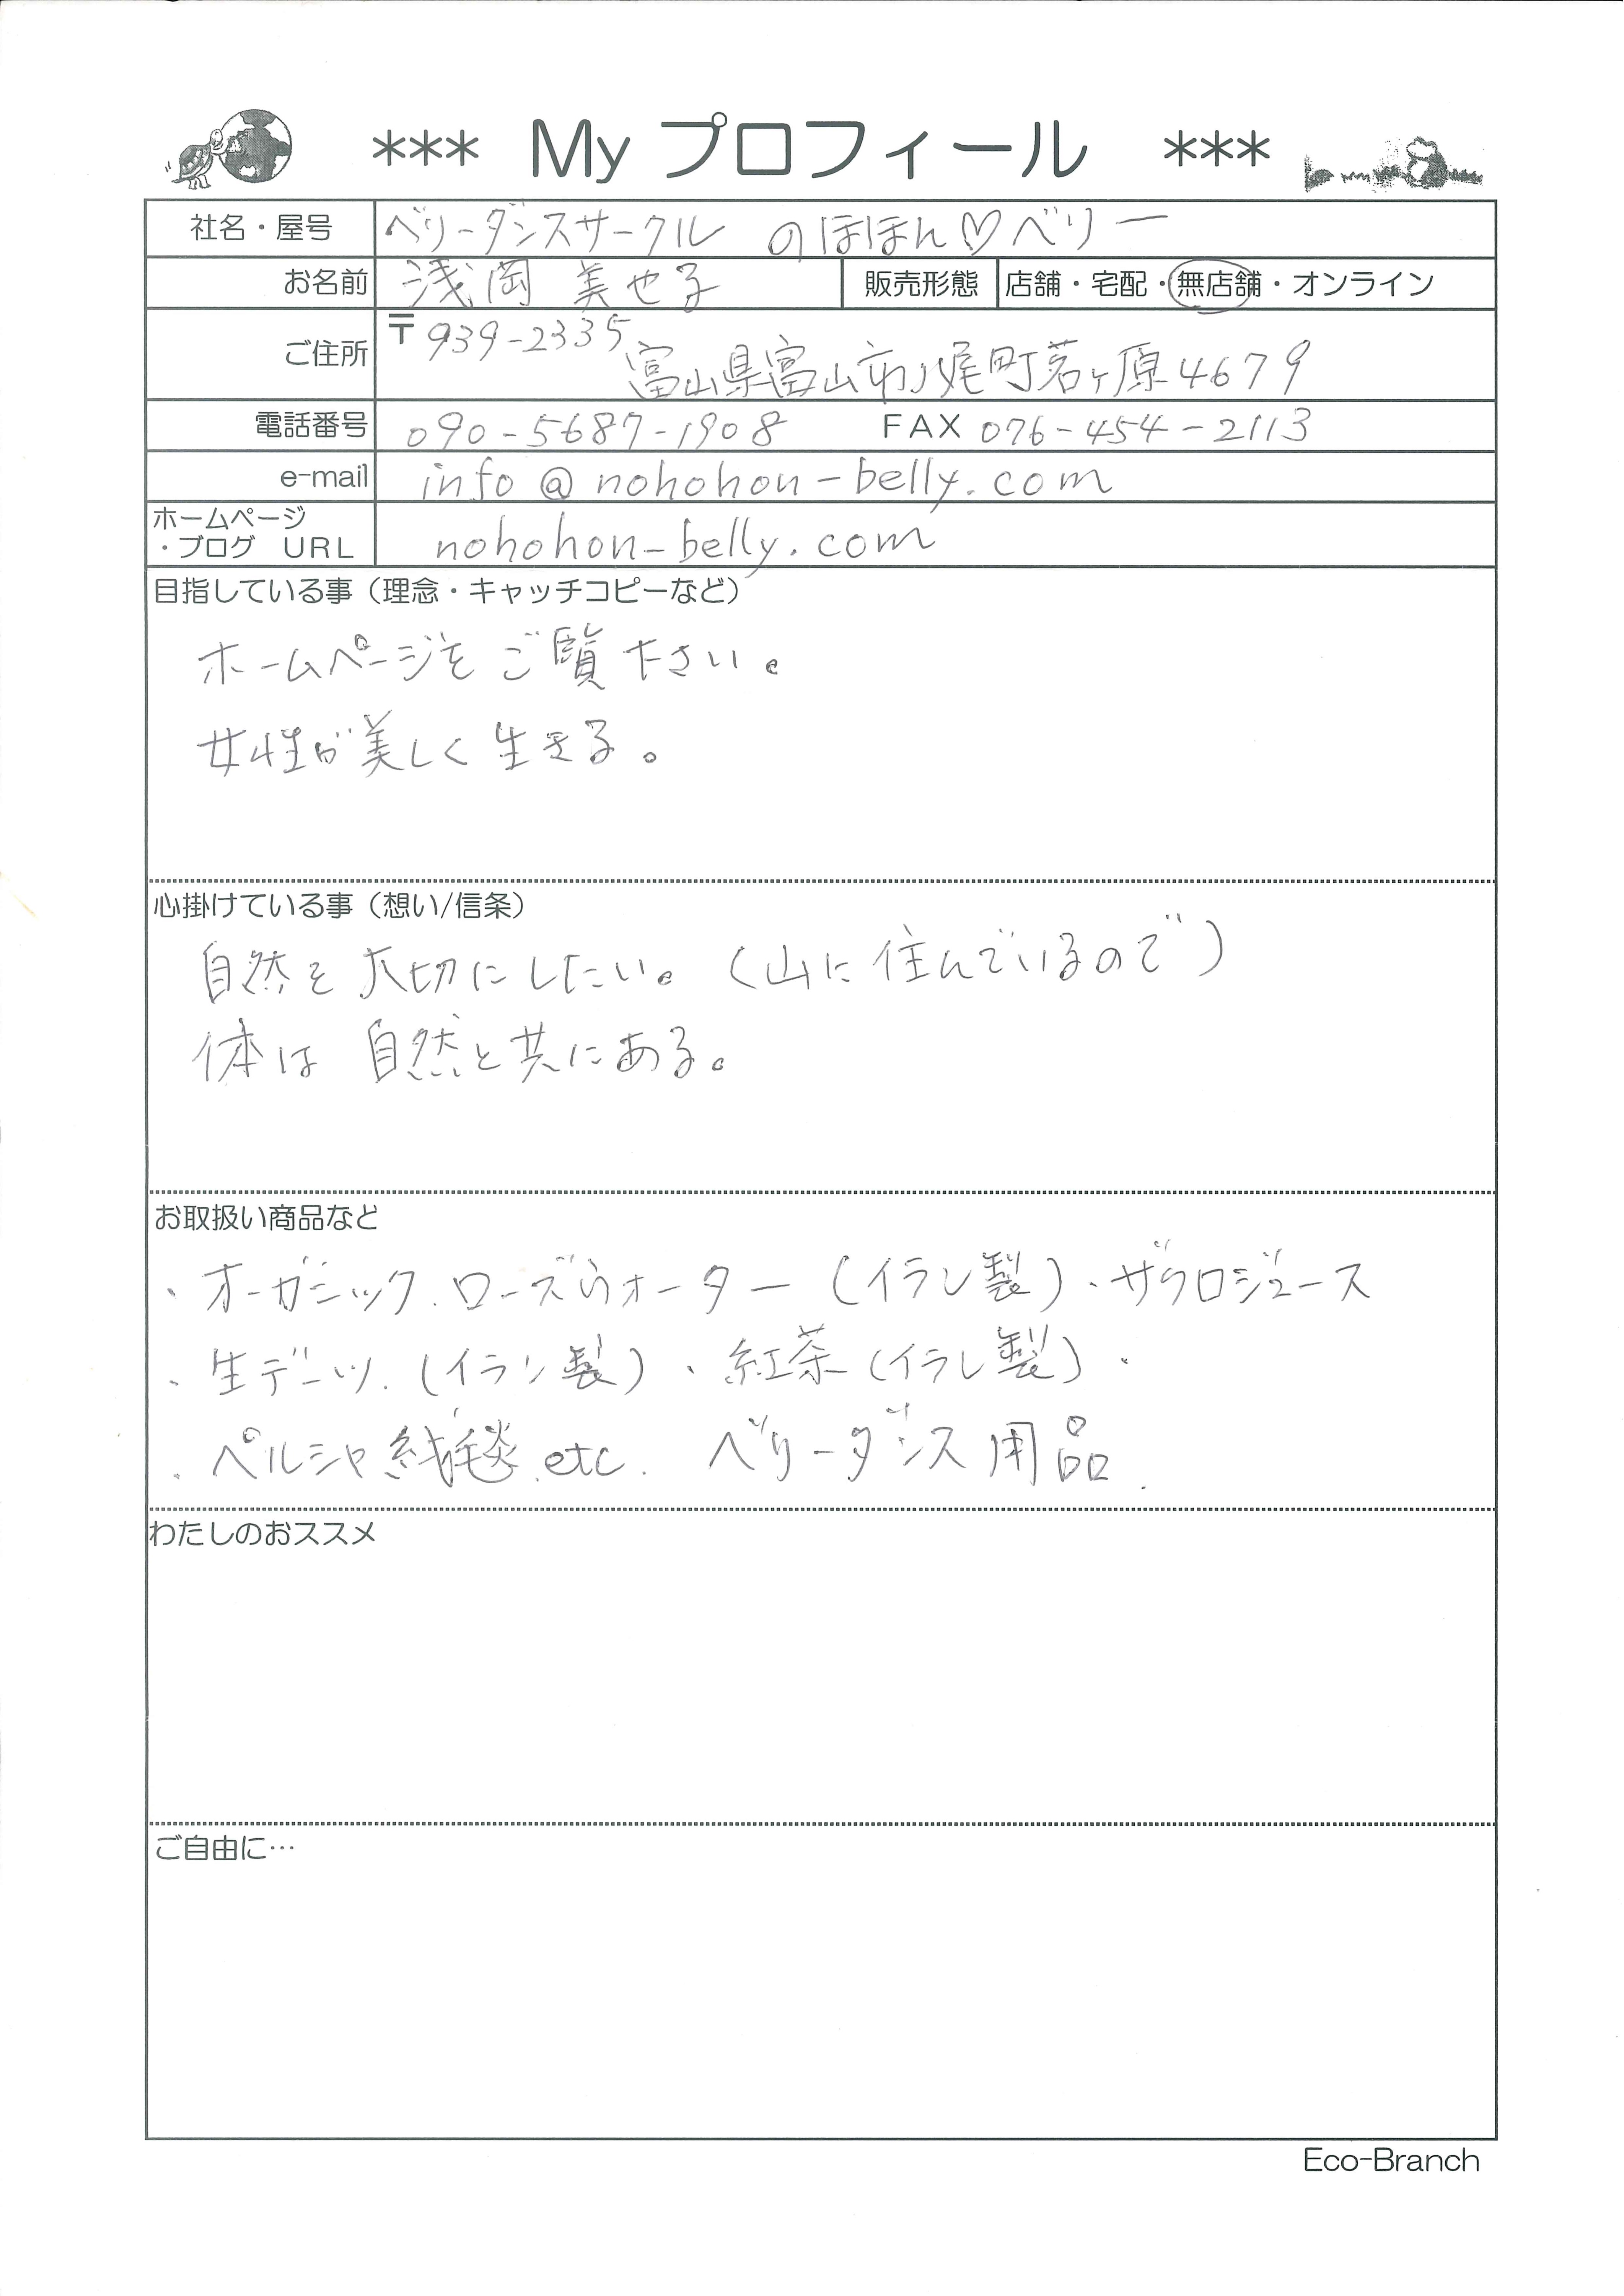 *** My プロフィール ***
社名・屋号 ベリーダンスサークル のほほん♡ベリー
お名前 浅岡 美也子 販売形態 店舗・宅配・無店舗・オンライン
ご住所 〒939-2335
富山県富山市八尾町茗ヶ原4679
電話番号 090-5687-1908 FAX 076-454-2113
e-mail info@nohohon-belly.com
ホームページ
・ブログ URL nohohon-belly.com
目指している事（理念・キャッチコピーなど）
ホームページをご覧下さい。
女性が美しく生きる。
心掛けている事（想い/信条）
自然を大切にしたい。（山に住んでいるので）
体は自然と共にある。
お取扱い商品など
・オーガニック.ローズウォーター（イラン製）・ザクロジュース
・生デーツ.（イラン製）・紅茶（イラン製）・
・ペルシャ絨毯.etc. ベリーダンス用品.
わたしのおススメ
ご自由に…
Eco-Branch